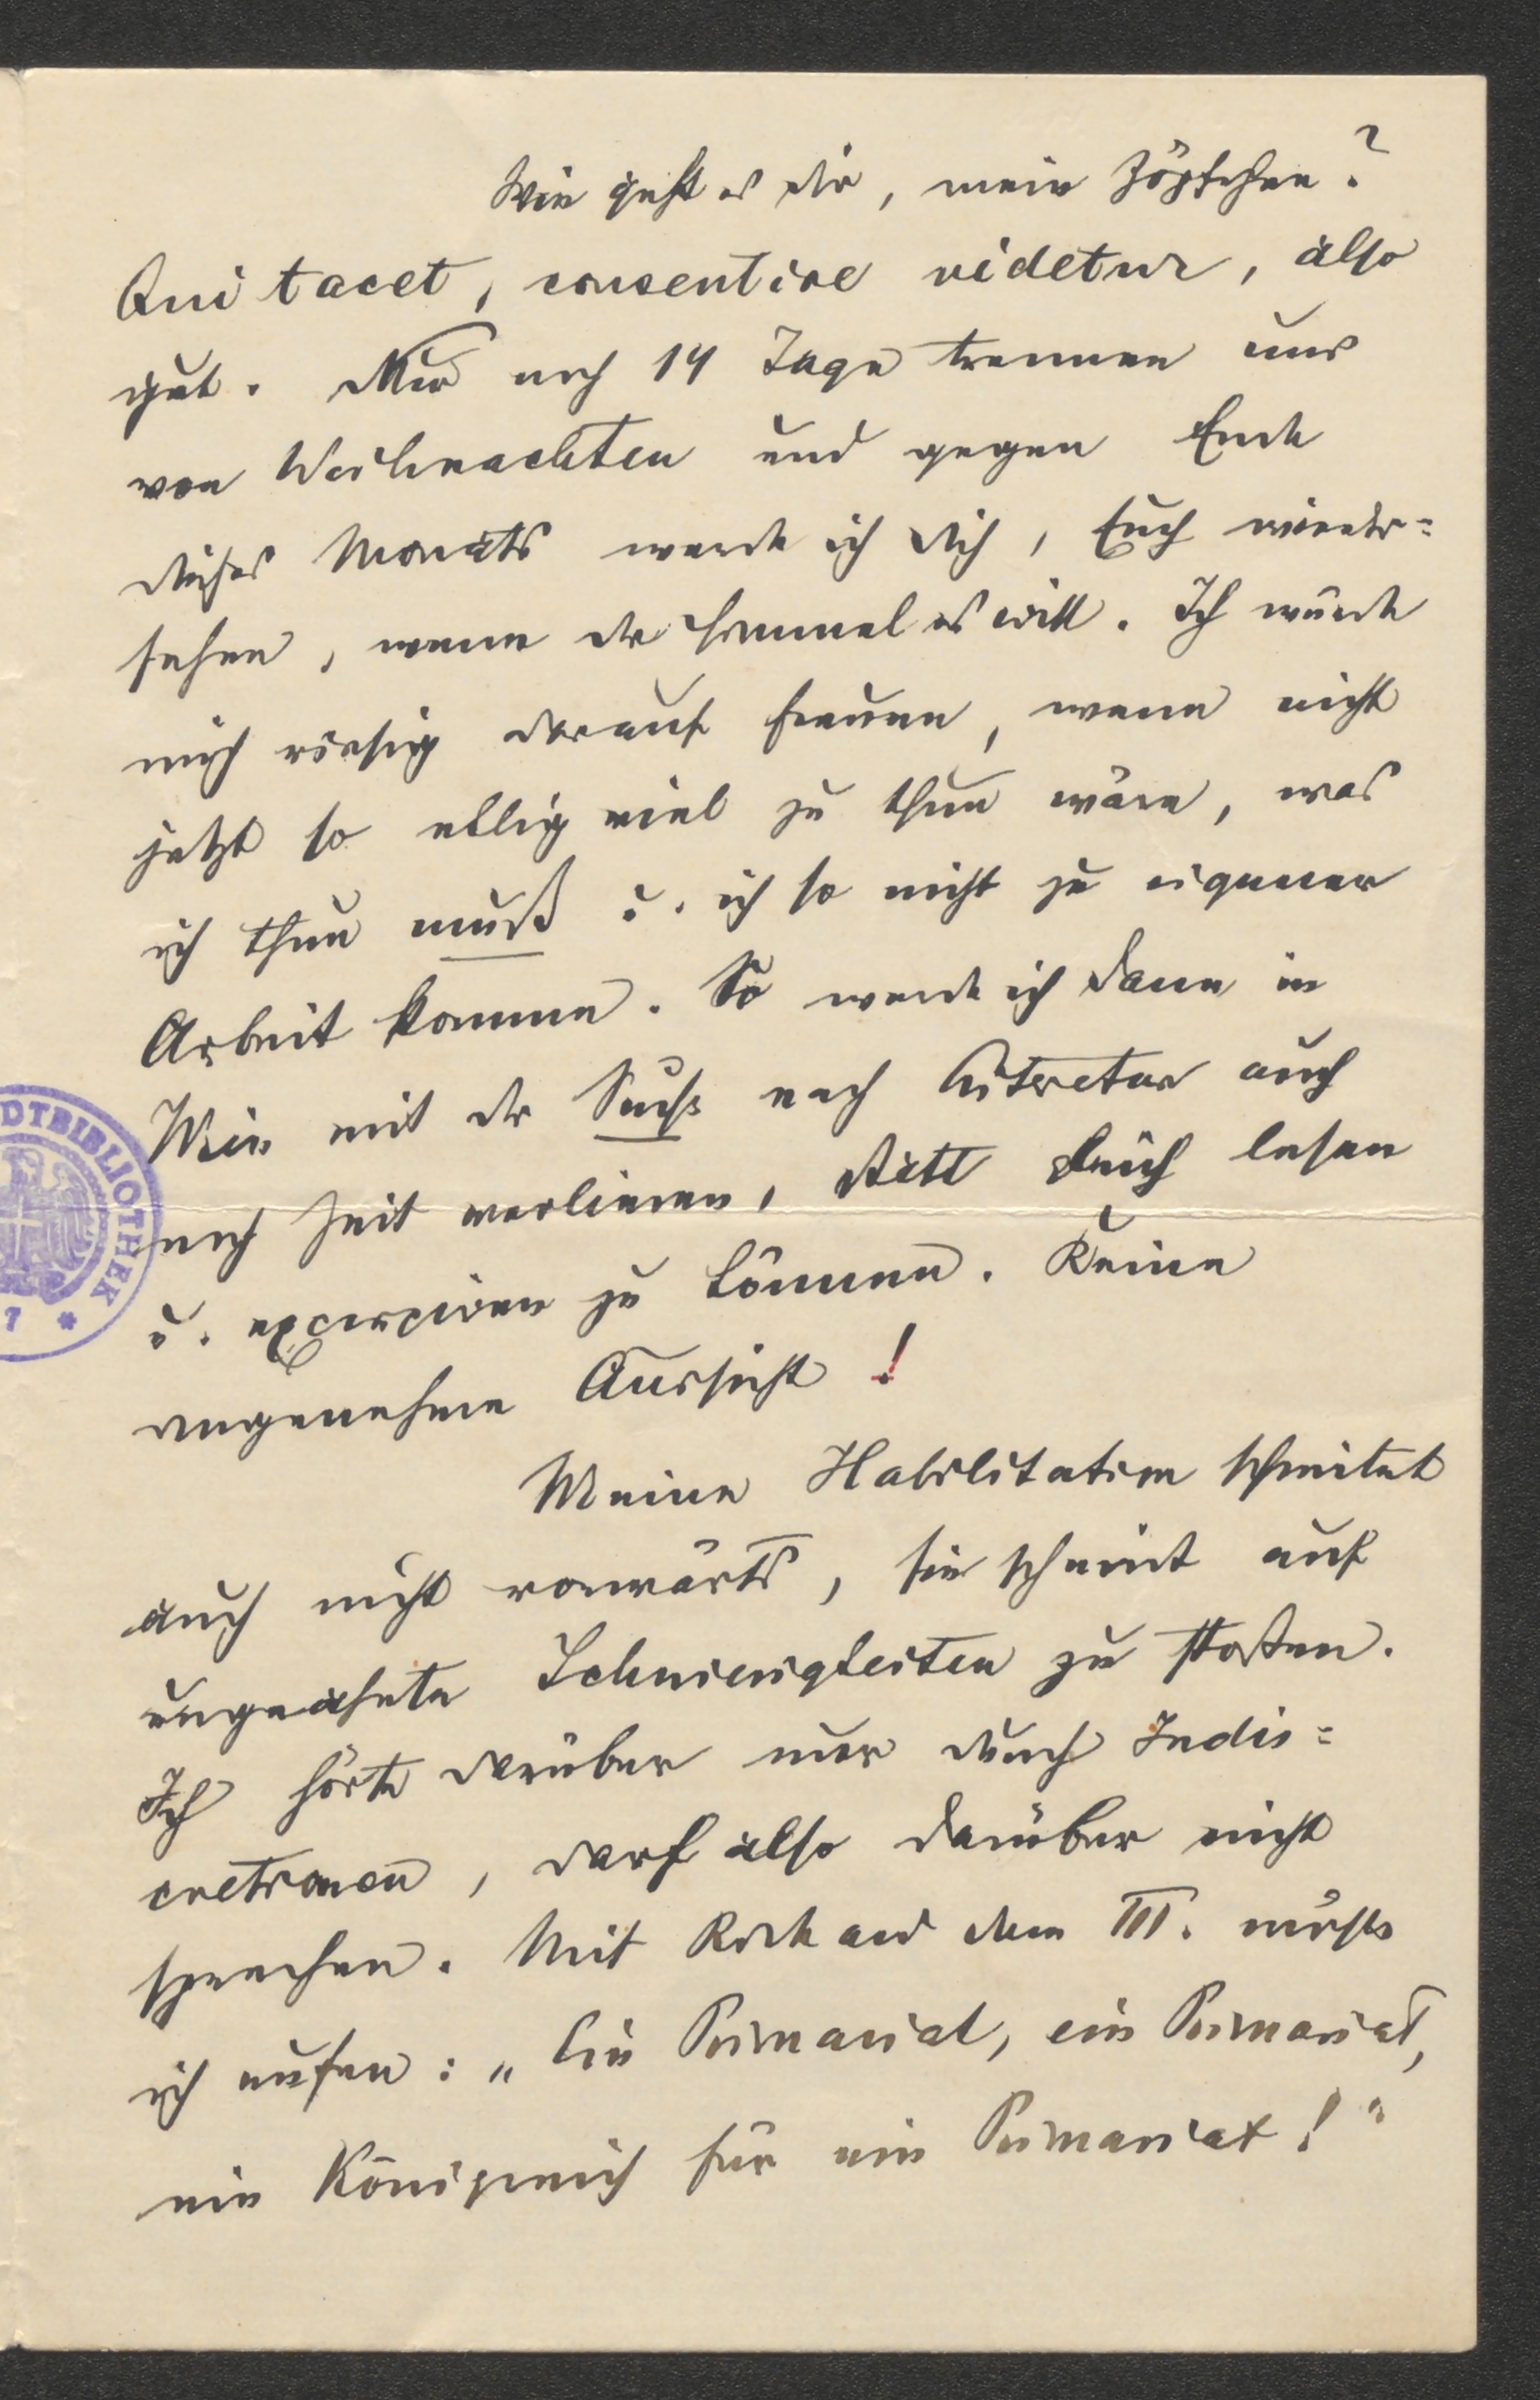 Wie geht es dir, mein Zöpfchen?
Qui tacet, consentire videtur, also
gut. Nur noch 14 Tage trennen uns
von Weihnachten und gegen Ende
dieses Monats werde ich dich, Euch wieder=
sehen, wenn der Himmel es will. Ich würde
mich riesig darauf freuen, wenn nicht
jetzt so eklig viel zu thun wäre, was
ich thun muß u. ich so nicht zu eigener
Arbeit komme. So werde ich dann in
Wien mit der Suche nach Literatur auch
noch Zeit verlieren, statt gleich lesen
u. excerpiren zu können. Keine
angenehme Aussicht!
Meine Habilitation schreitet
auch nicht vorwärts, sie scheint auf
ungeahnte Schwierigkeiten zu stoßen.
Ich hörte darüber nur durch Indis=
cretionen, darf also darüber nicht
sprechen. Mit Richard dem III. möchte
ich rufen: „Ein Primariat, ein Primariat,
ein Königreich für ein Primariat!"
DTBIBLIOTHEK
7 *